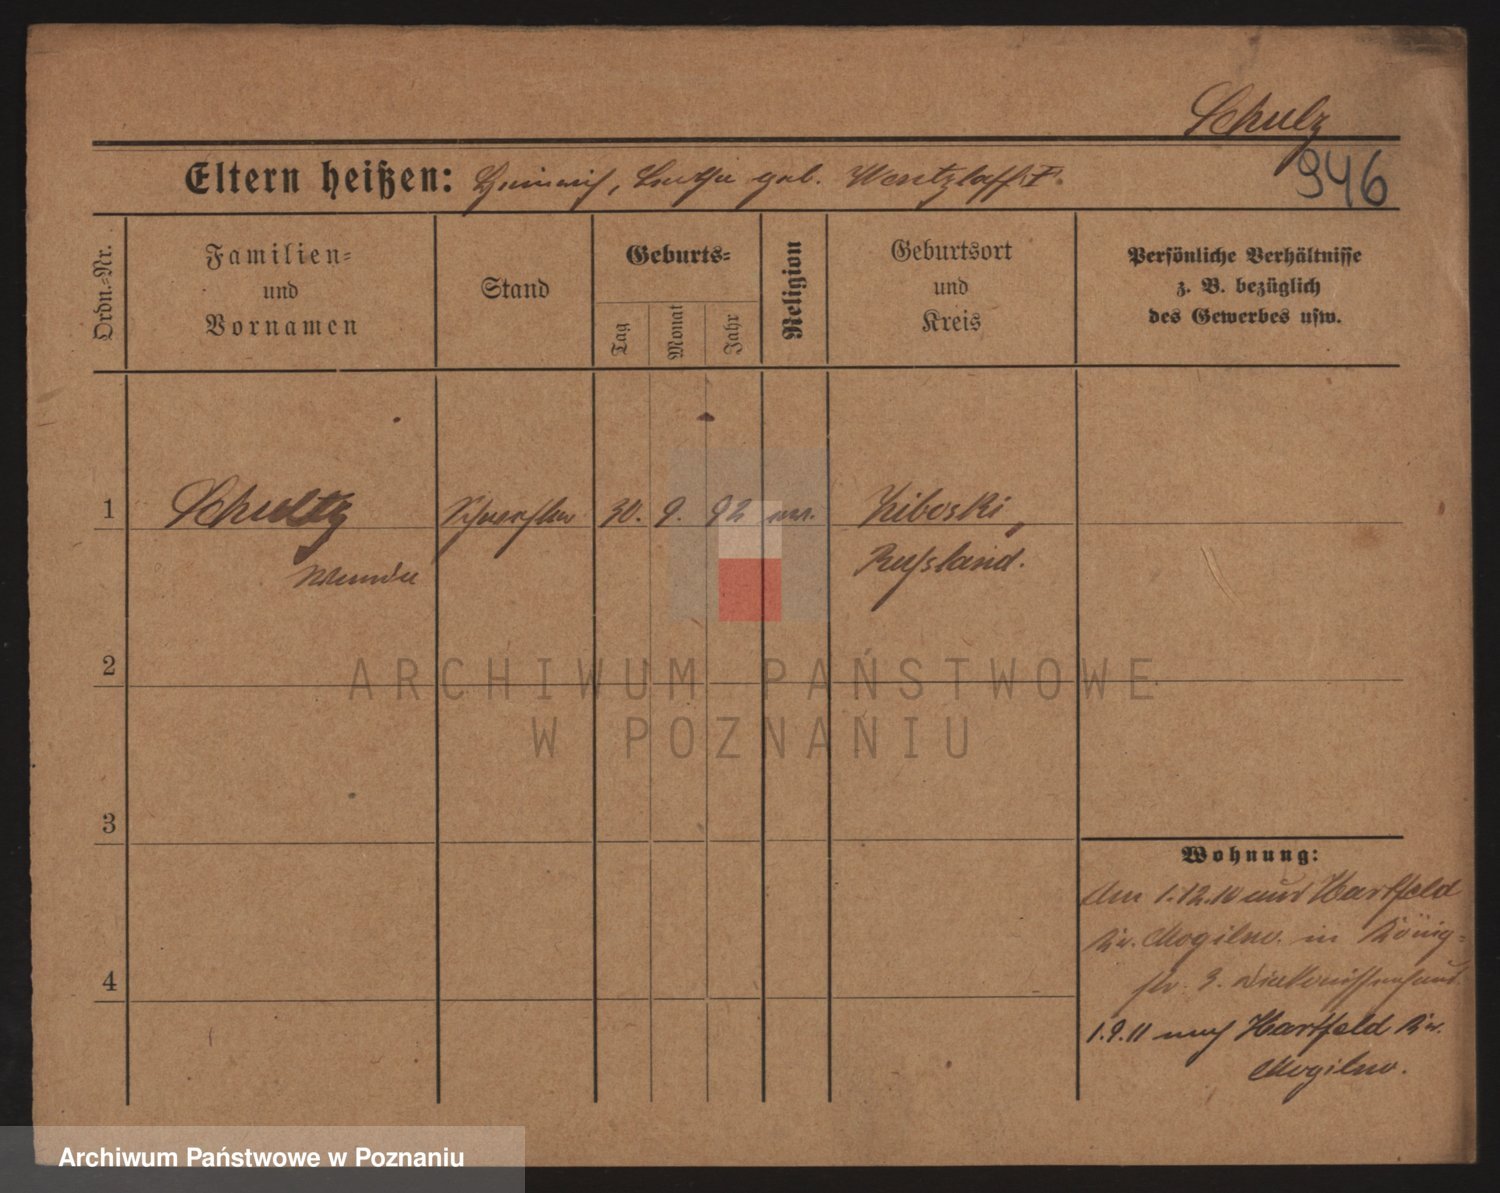 Schulz
946
Eltern heißen: Heinrich, geb. Wentzlaff
Ordn.-Nr.
Familien-
und
Vornamen
Stand
Geburts-
Tag
Monat
Jahr
Religion
Geburtsort
und
Kreis
Persönliche Verhältnisse
z. B. bezüglich
des Gewerbes usw.
1 Schultz 30. 9. 92 ev. Ziboski,
Russland.
2
3
4
Wohnung:
Am 1.12.10 aus Hartfeld
Kr. Mogilno. in König-
str. 3. Diakonissenhaus
1.9.11 nach Hartfeld Kr.
Mogilno.
ARCHIWUM PAŃSTWOWE
W POZNANIU
Archiwum Państwowe w Poznaniu